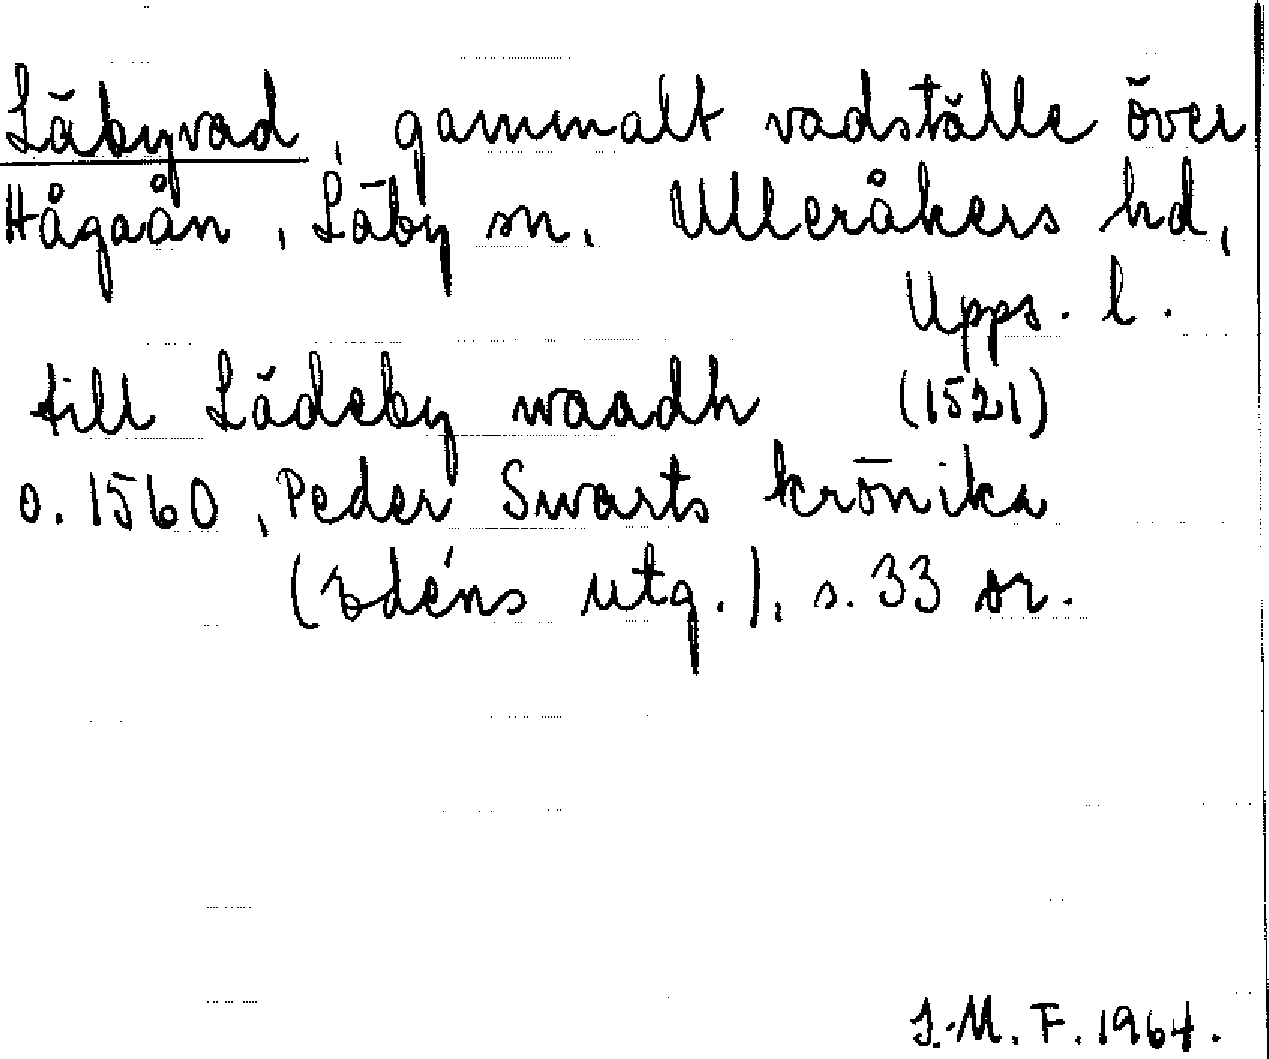 Läbyvad, gammalt vadställe över
Hågaån, Läby sn, Ulleråkers hd,
Upps. l.
till Lädeby waadh (1521)
o. 1560, Peder Swarts krönika
(Edéns utg.), s. 33 sr.
J.M.F. 1964.